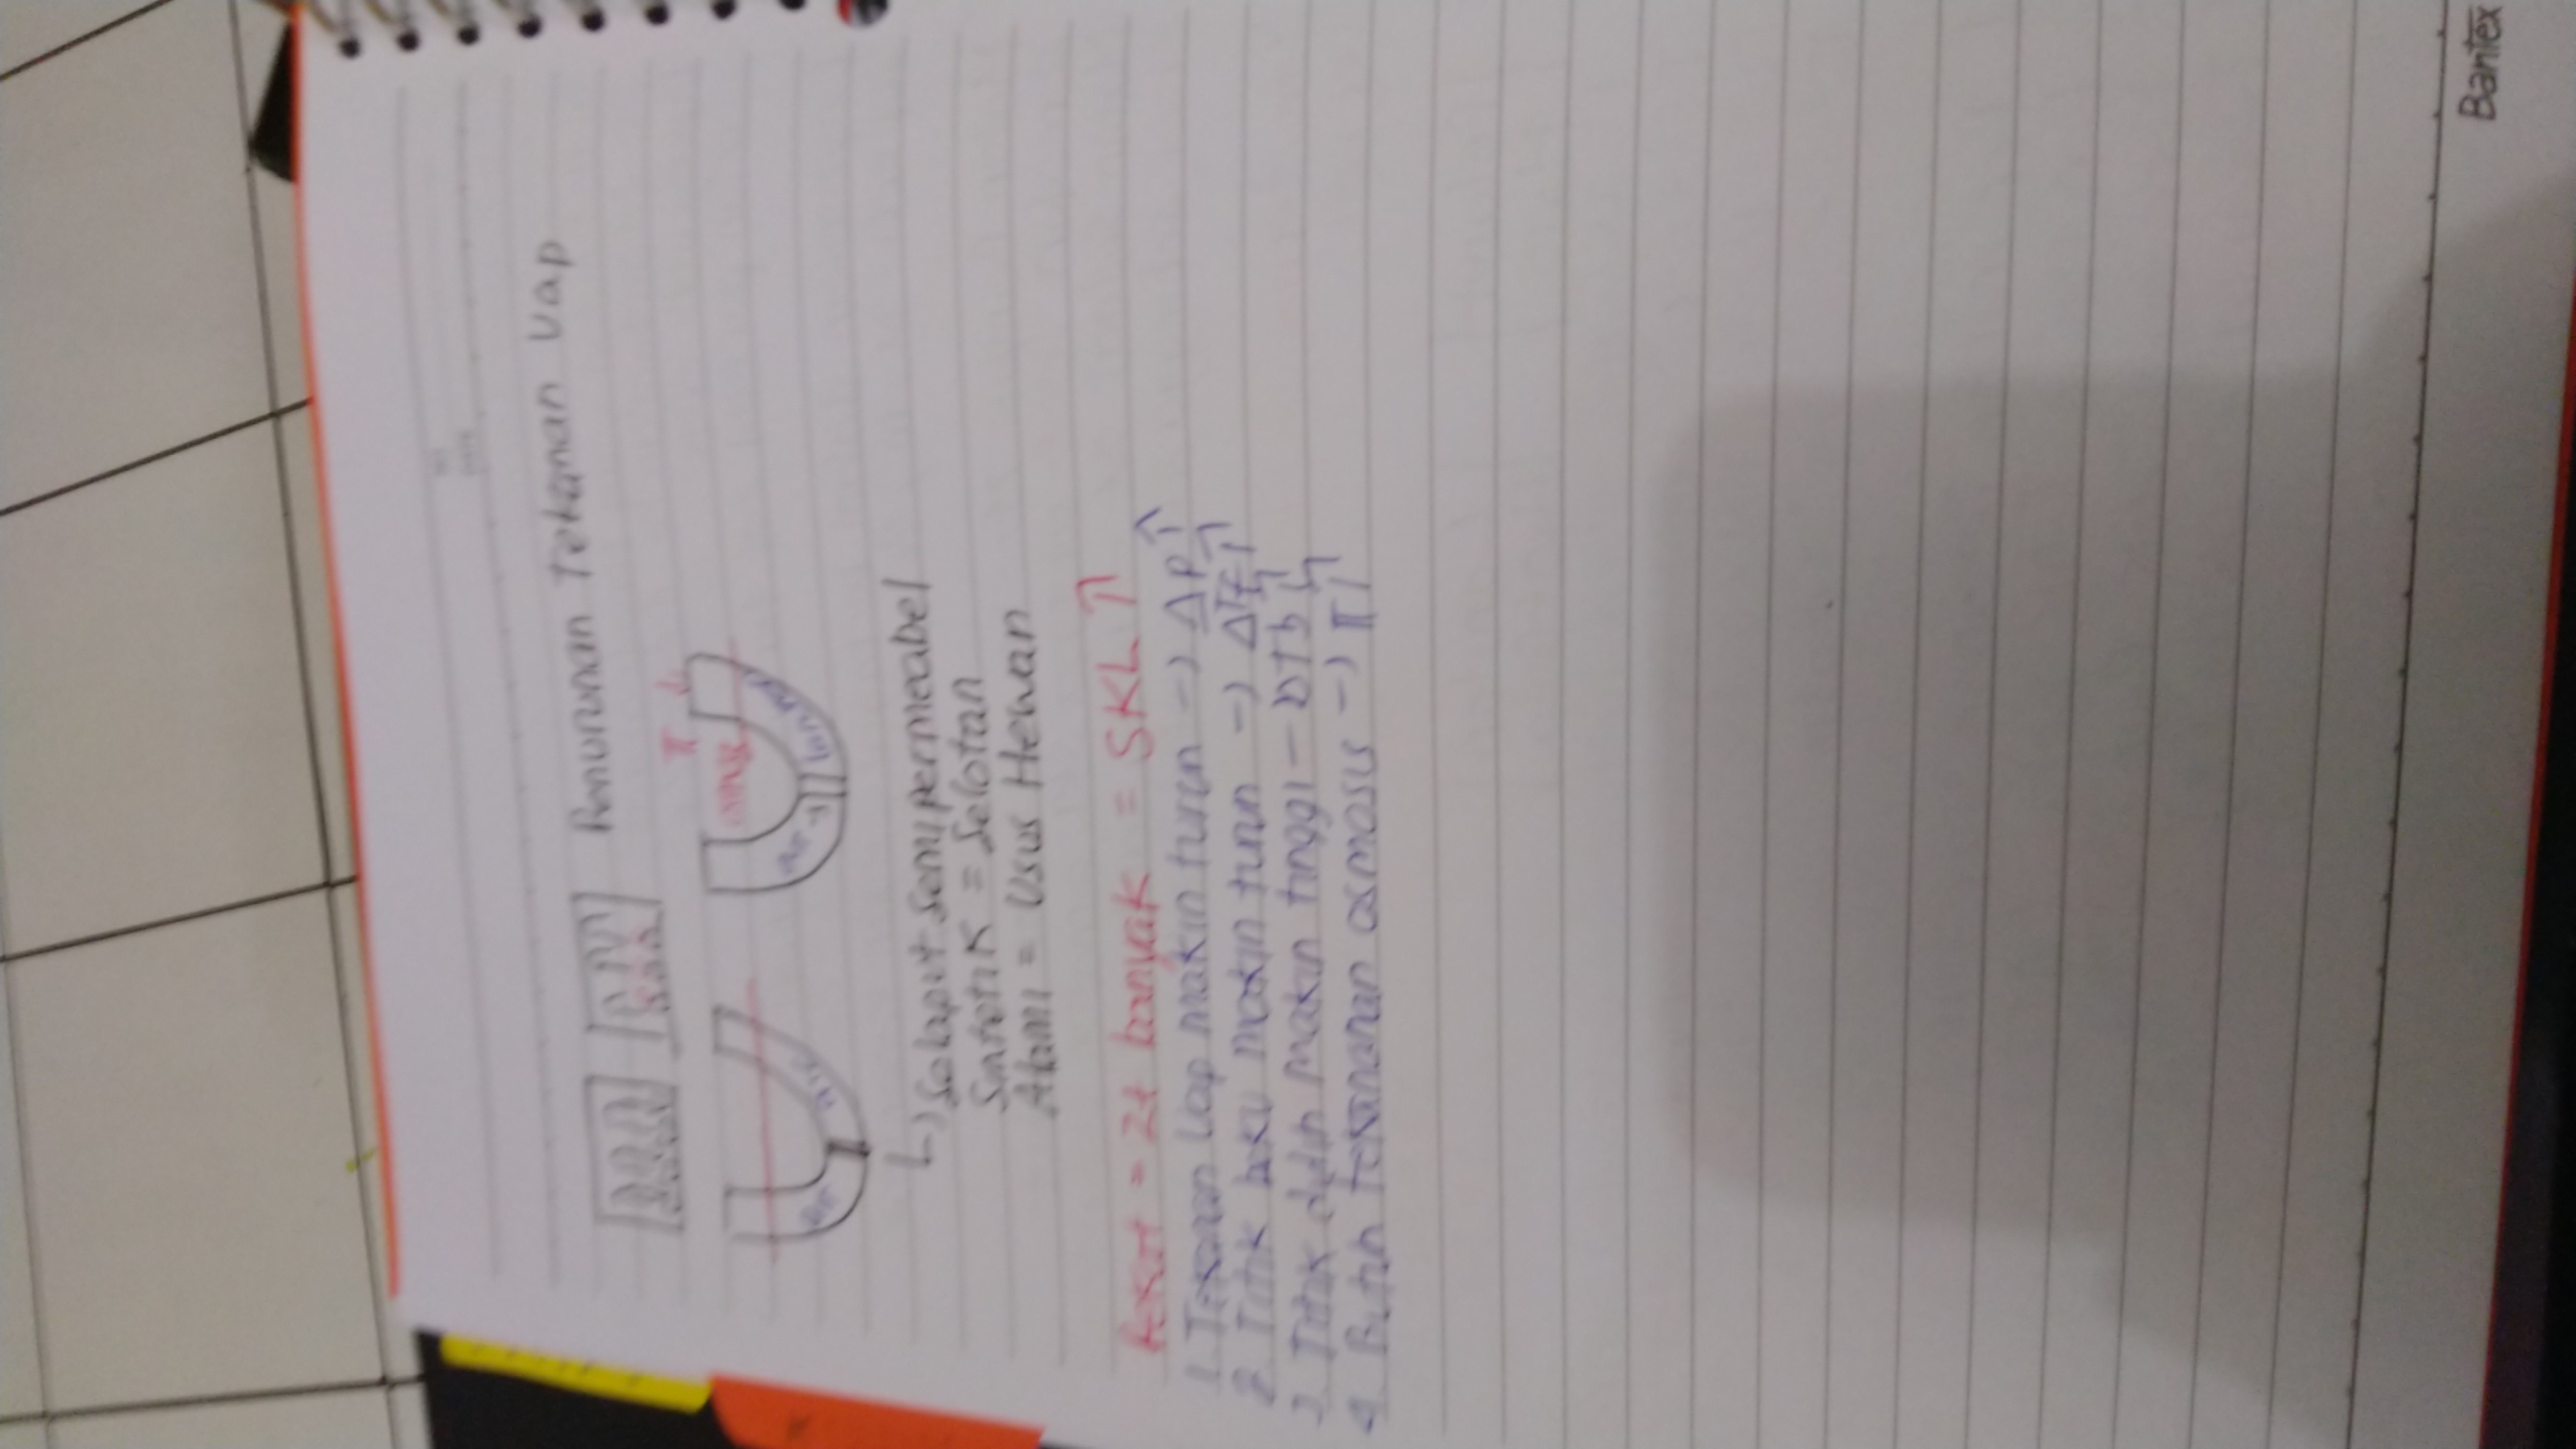 NO
DATE
Penurunan Tekanan Uap
π ↓
air air
air → larutan
↳ Selaput semipermeabel
Sintetik = Selofan
Alami = Usus Hewan
Pekat = Zt banyak = SKL ↑
1. Tekanan Uap makin turun → ΔP ↑
2. Titik beku makin turun → ΔTf ↑
3. Titik didih makin tinggi – ΔTb ↑
4. Butuh tekananan osmosis → π ↑
Bantex